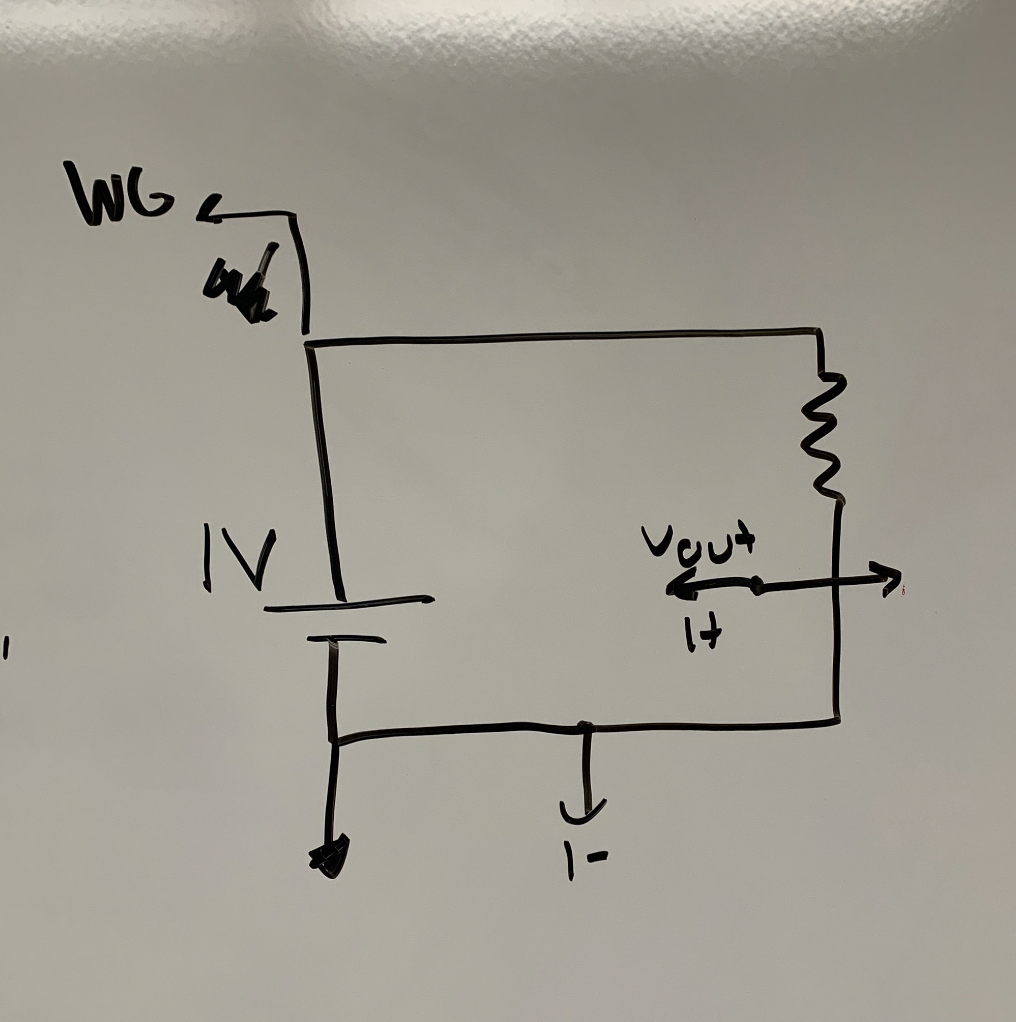 WG
1V
Vout
1+
1-